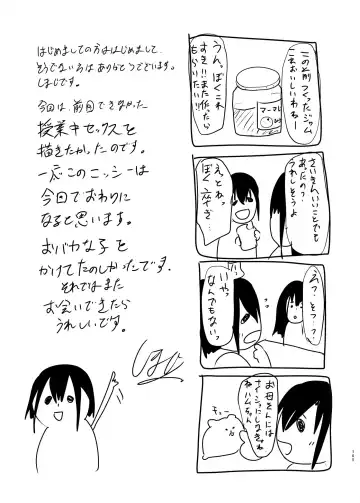 この前つくったジャム
これおいしいわねー
うん。ぼくこれ
すき!!また作ったら
もらいたい!!
さいきんいいことでも
あったの?
うれしそうよ
えっとねっ
ぼく
えっ?そっ?
いやっ
なんでもないっ
お母さんには
ナイショにしなきゃ
ねハムちゃん
はじめましての方ははじめまして、
そうでない方はありがとうございます。
しまじです。
今回は前回できなかった
授業中セックスを
描きたかったのです。
一応このニッシーは
今回でおわりに
なると思います。
おバカな子を
かけてたのしかったです。
それではまた
お会いできたら
うれしいです。